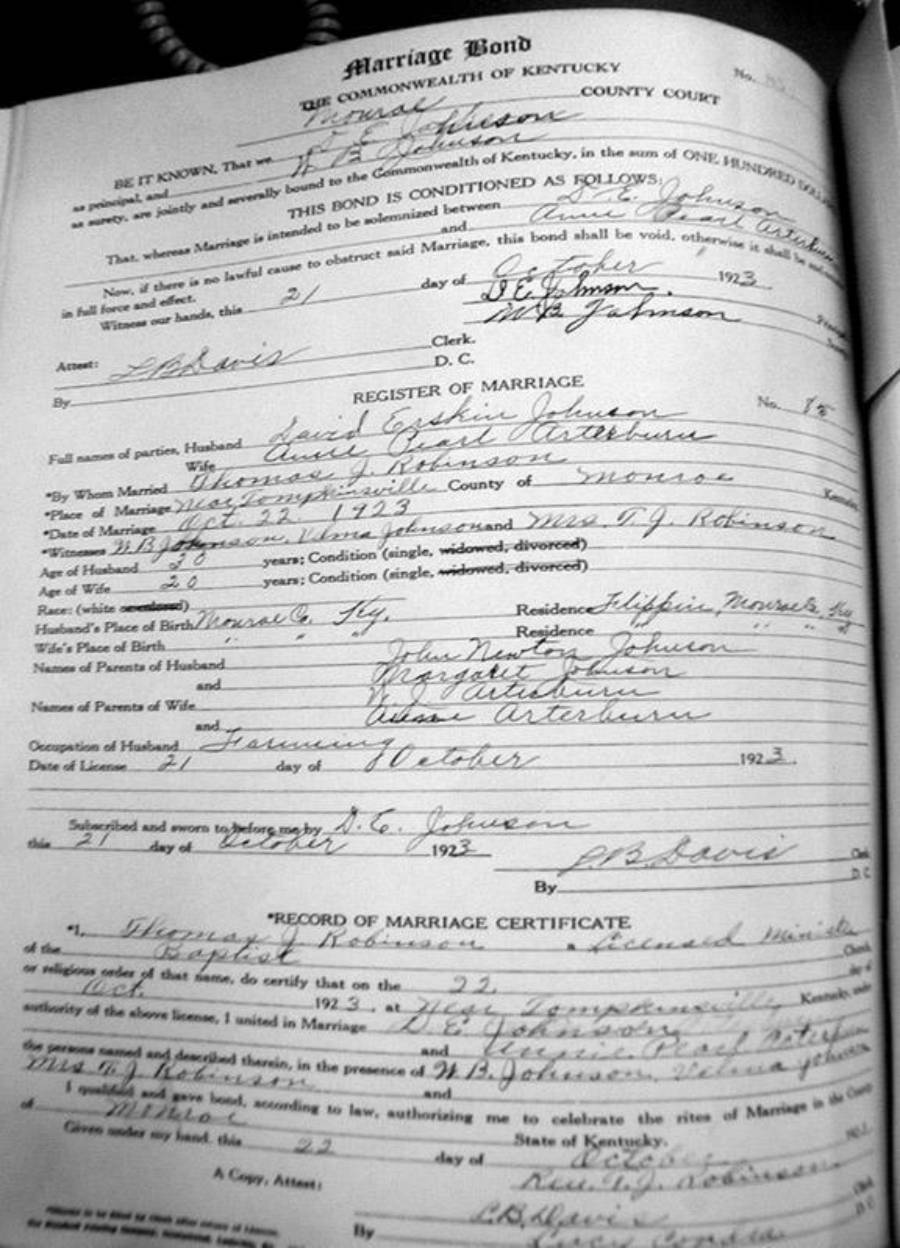 Marriage Bond
No.
THE COMMONWEALTH OF KENTUCKY
Monroe COUNTY COURT
BE IT KNOWN, That we D. E. Johnson
as principal, and W B Johnson
as surety, are jointly and severally bound to the Commonwealth of Kentucky, in the sum of ONE HUNDRED
THIS BOND IS CONDITIONED AS FOLLOWS:
That, whereas Marriage is intended to be solemnized between D. E. Johnson
and Annie Pearl Arterburn
Now, if there is no lawful cause to obstruct said Marriage, this bond shall be void, otherwise it shall be
in full force and effect.
Witness our hands, this 21 day of October 1923
D E Johnson.
W B Johnson
Attest: Clerk.
By D. C.
REGISTER OF MARRIAGE
No. 15
Full names of parties, Husband David Erskin Johnson
Wife Annie Pearl Arterburn
*By Whom Married Thomas J. Robinson
*Place of Marriage Near Tompkinsville County of Monroe Kentucky
*Date of Marriage Oct. 22 1923
*Witnesses W. B Johnson, Velma Johnson and Mrs. T. J. Robinson
Age of Husband 20 years; Condition (single, widowed, divorced)
Age of Wife 20 years; Condition (single, widowed, divorced)
Race: (white or colored)
Husband's Place of Birth Monroe Co. Ky. Residence Flippin, Monroe Co. Ky
Wife's Place of Birth " " " Residence " " "
Names of Parents of Husband John Newton Johnson
and Margaret Johnson
Names of Parents of Wife Arterburn
and Arterburn
Occupation of Husband Farming
Date of License 21 day of October 1923.
Subscribed and sworn to before me by D. E. Johnson
this 21 day of October 1923
Davis Clerk
By D. C.
*RECORD OF MARRIAGE CERTIFICATE
*I, Thomas J. Robinson a Licensed Minister
of the Baptist Church
or religious order of that name, do certify that on the 22. day of
Oct. 1923, at Near Tompkinsville Kentucky, under
authority of the above license, I united in Marriage D. E. Johnson
and Annie Pearl Arterburn
the persons named and described therein, in the presence of W. B. Johnson, Velma Johnson
Mrs T. J. Robinson and
I qualified and gave bond, according to law, authorizing me to celebrate the rites of Marriage in the County
of Monroe State of Kentucky.
Given under my hand, this 22 day of October
Rev. T. J. Robinson
A Copy, Attest: Davis
By Lucy